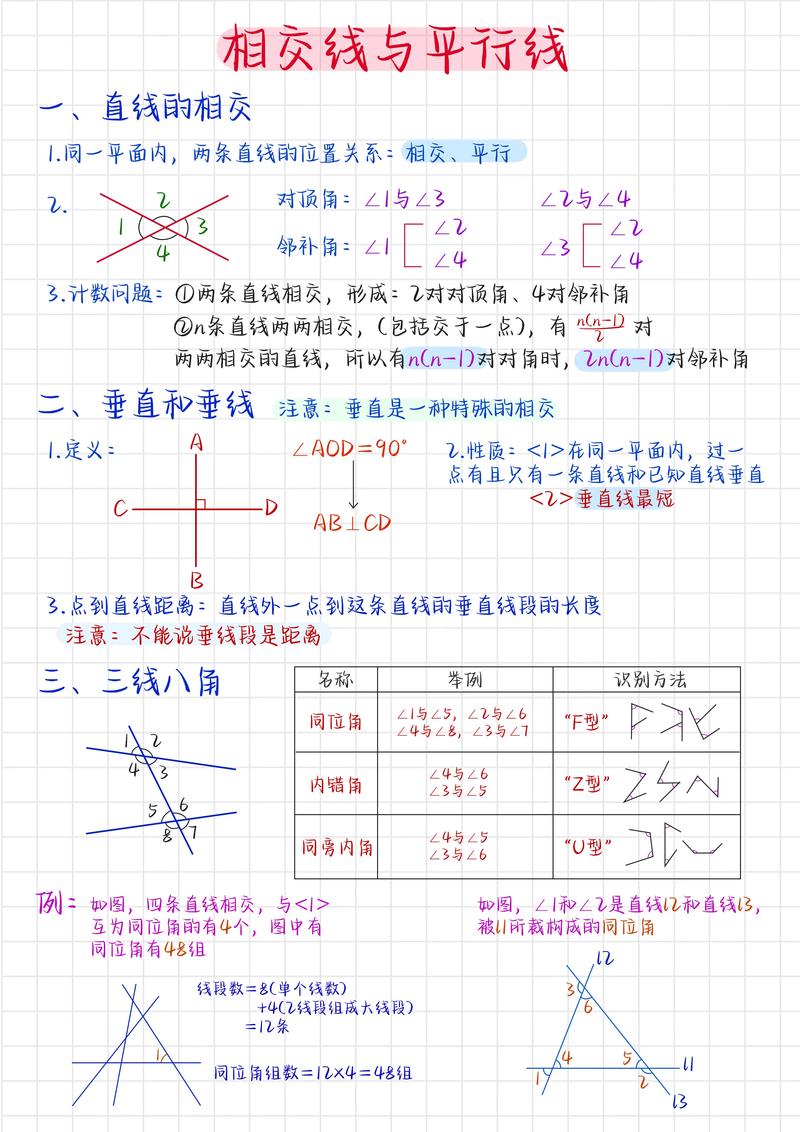 相交线与平行线
一、直线的相交
1.同一平面内，两条直线的位置关系：相交、平行
2.
1 2 3 4
对顶角：∠1与∠3 ∠2与∠4
邻补角：∠1 ∠2 ∠4 ∠3 ∠2 ∠4
3.计数问题：①两条直线相交，形成：2对对顶角、4对邻补角
②n条直线两两相交，(包括交于一点)，有 n(n-1)/2 对
两两相交的直线，所以有n(n-1)对对角时，2n(n-1)对邻补角
二、垂直和垂线 注意：垂直是一种特殊的相交
1.定义：
A
C D
B
∠AOD=90°
AB⊥CD
2.性质：<1>在同一平面内，过一
点有且只有一条直线和已知直线垂直
<2>垂直线最短
3.点到直线距离：直线外一点到这条直线的垂直线段的长度
注意：不能说垂线段是距离
三、三线八角
1 2
4 3
5 6
8 7
名称 举例 识别方法
同位角 ∠1与∠5，∠2与∠6 “F型”
∠4与∠8，∠3与∠7
内错角 ∠4与∠6 “Z型”
∠3与∠5
同旁内角 ∠4与∠5 “U型”
∠3与∠6
例：如图，四条直线相交，与<1>
互为同位角的有4个，图中有
同位角有48组
1
线段数=8(单个线数)
+4(2线段组成大线段)
=12条
同位角组数=12×4=48组
如图，∠1和∠2是直线l2和直线l3，
被l1所裁构成的同位角
l2
3
6
4 5 l1
1 2
l3